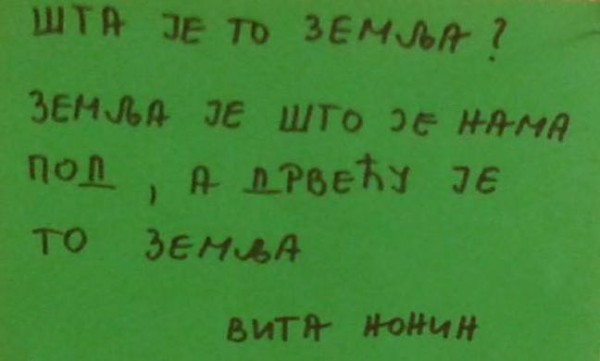 ШТА ЈЕ ТО ЗЕМЉА?
ЗЕМЉА ЈЕ ШТО ЈЕ НАМА
ПОД, А ДРВЕЋУ ЈЕ
ТО ЗЕМЉА
ВИТА НОНИН